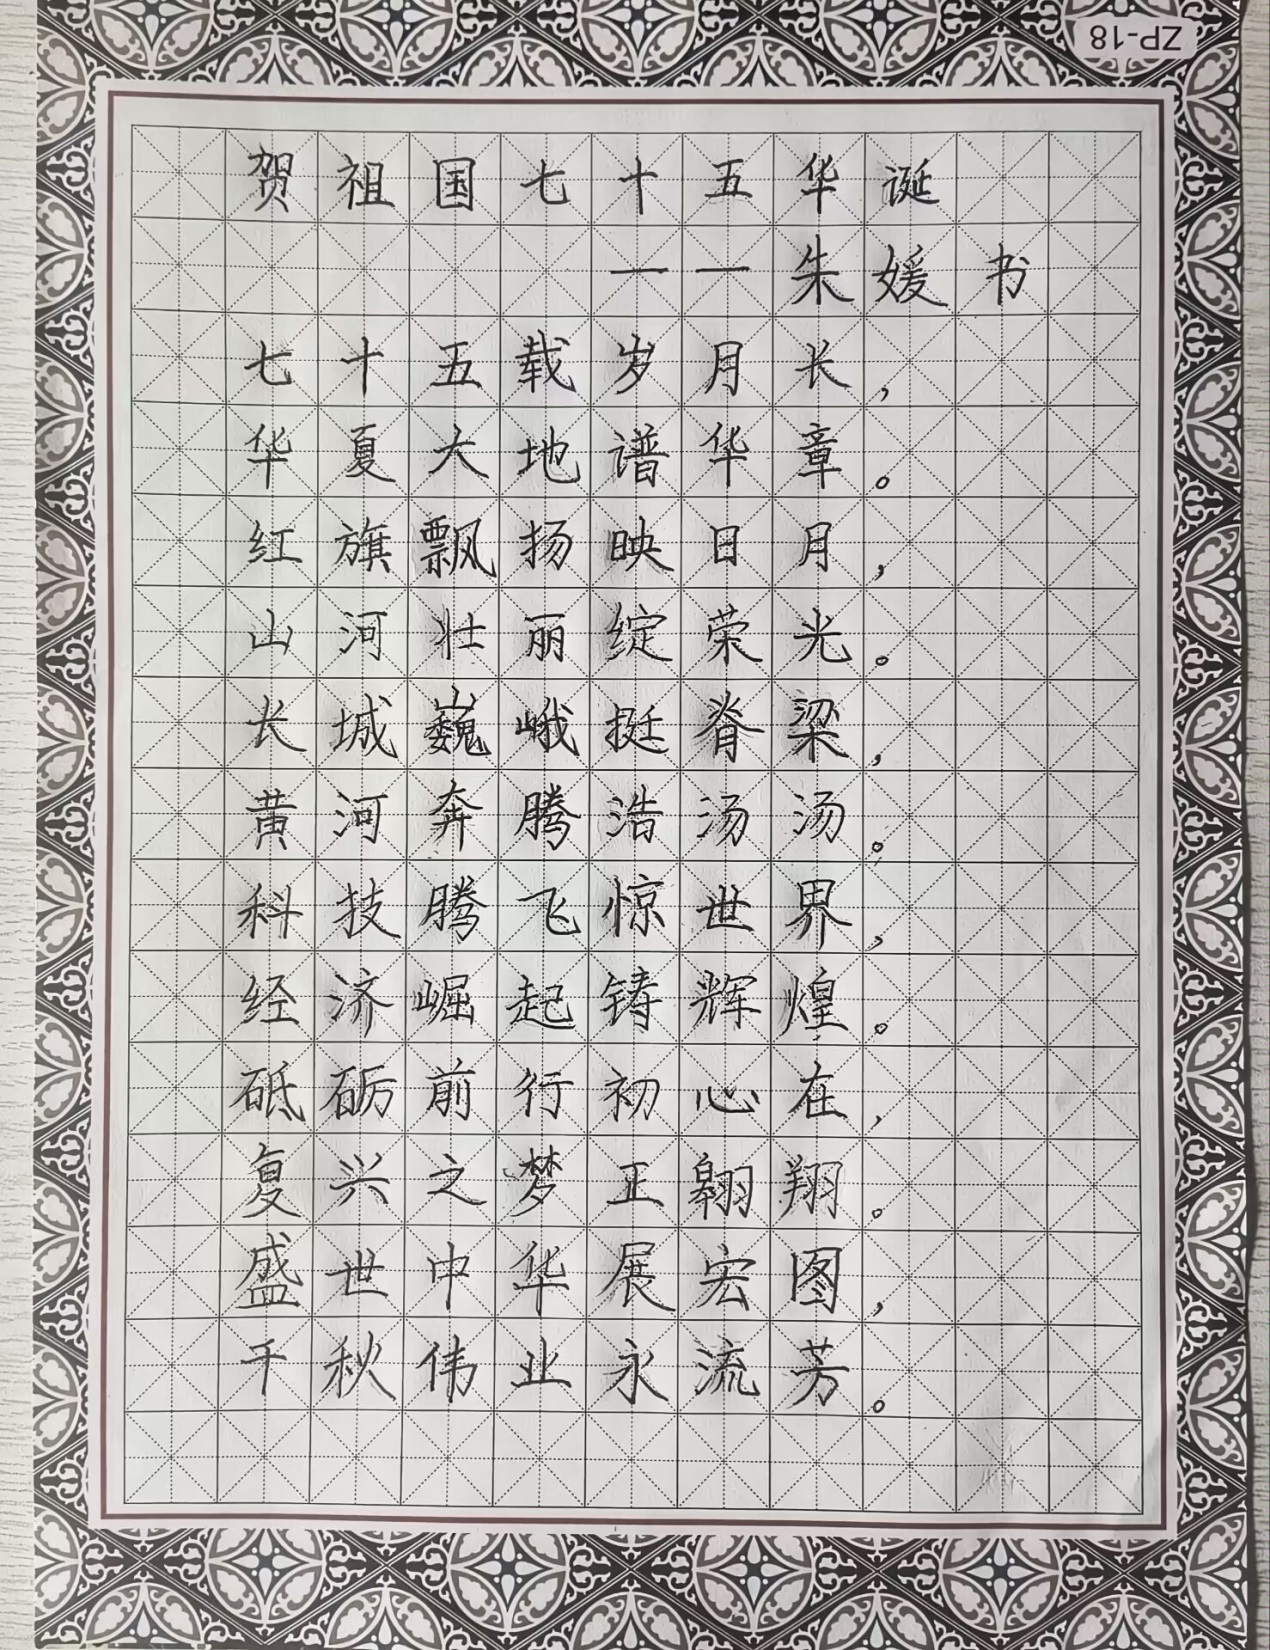 ZP-18
贺祖国七十五华诞
——朱媛书
七十五载岁月长，
华夏大地谱华章。
红旗飘扬映日月，
山河壮丽绽荣光。
长城巍峨挺脊梁，
黄河奔腾浩汤汤。
科技腾飞惊世界，
经济崛起铸辉煌。
砥砺前行初心在，
复兴之梦正翱翔。
盛世中华展宏图，
千秋伟业永流芳。